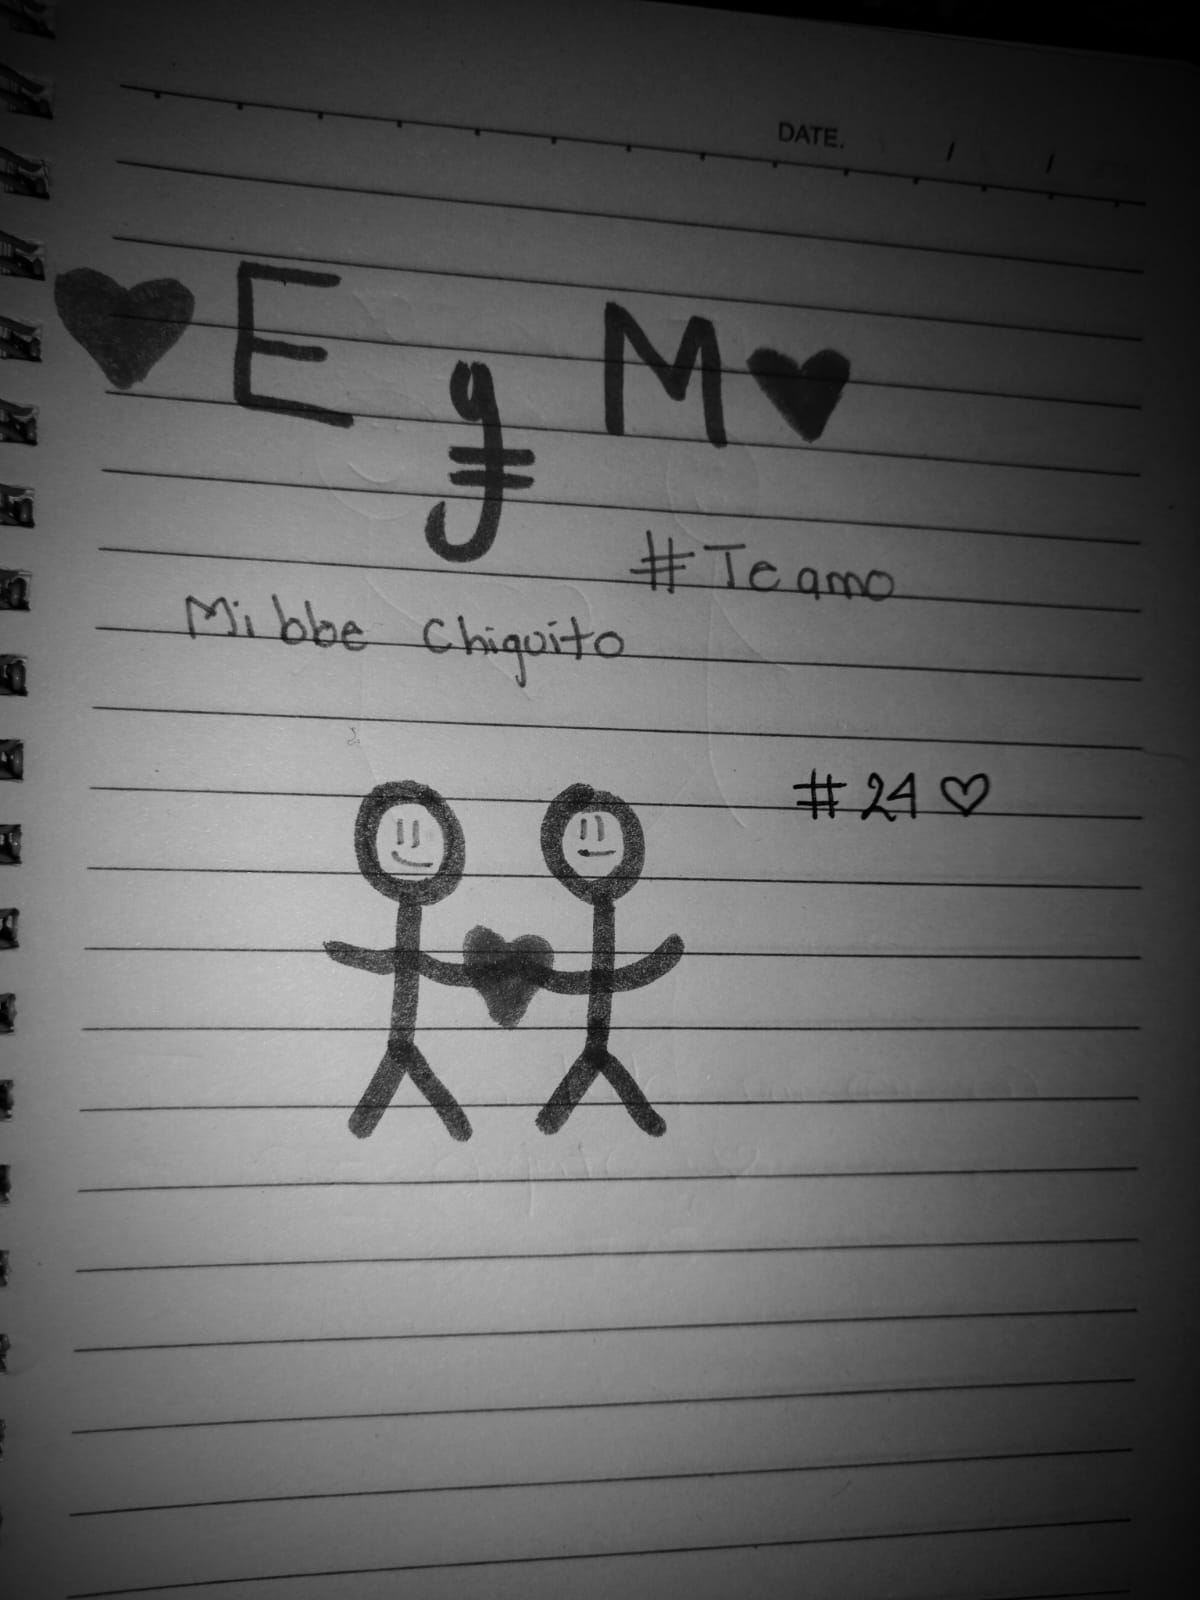 DATE. / /
♥ E y M ♥
#Te amo
Mi bbe chiquito
#24 ♡